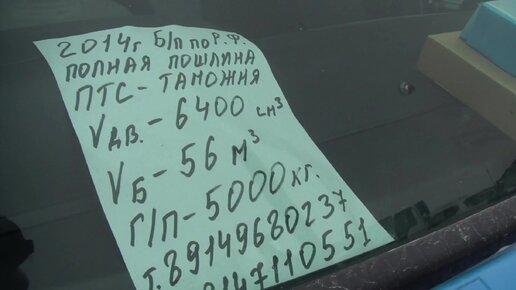 2014г Б/П по Р.Ф.
ПОЛНАЯ ПОШЛИНА
ПТС - ТАМОЖНЯ
Vдв. - 6400 см³
VБ - 56 м³
Г/П - 5000 кг.
т. 89149680237
9147110551